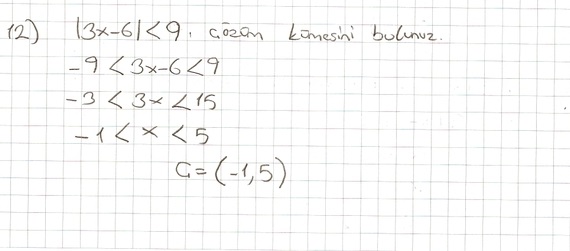 12) |3x-6|<9. çözüm kümesini bulunuz.
-9<3x-6<9
-3<3x<15
-1<x<5
Ç=(-1,5)